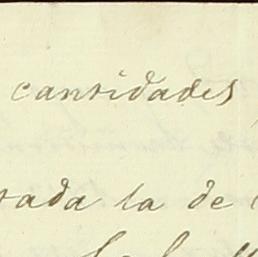 cantidades
sada la de